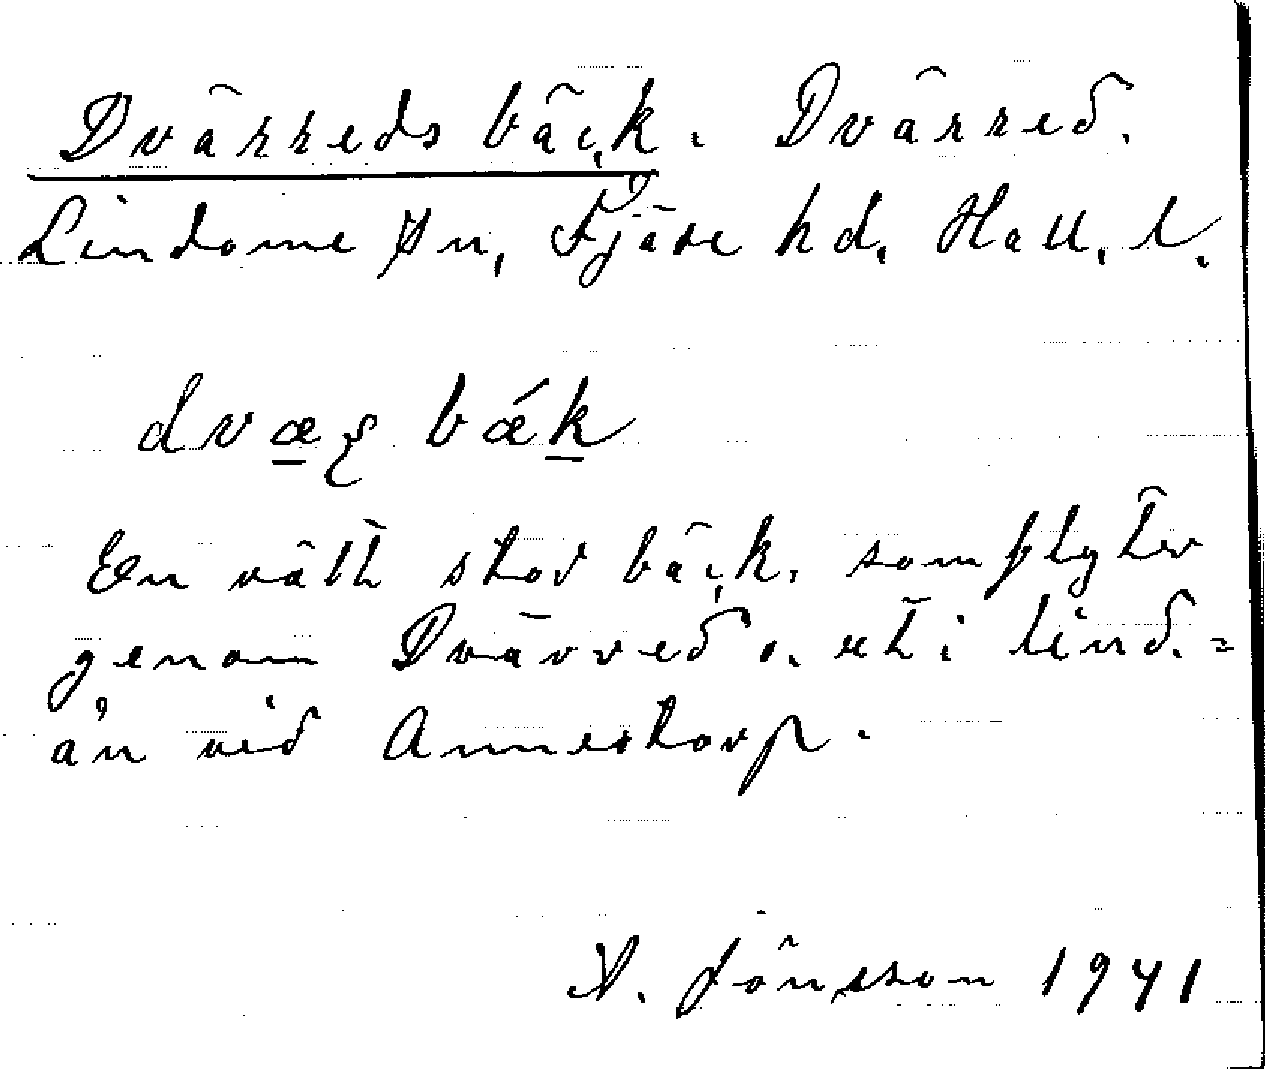 Dvärreds bäck. Dvärred.
Lindome sn, Fjäre hd. Hall. l.
En rätt stor bäck, som flyter
genom Dvärred o. ut i Lind.=
ån vid Annestorp.
A. Jönsson 1941